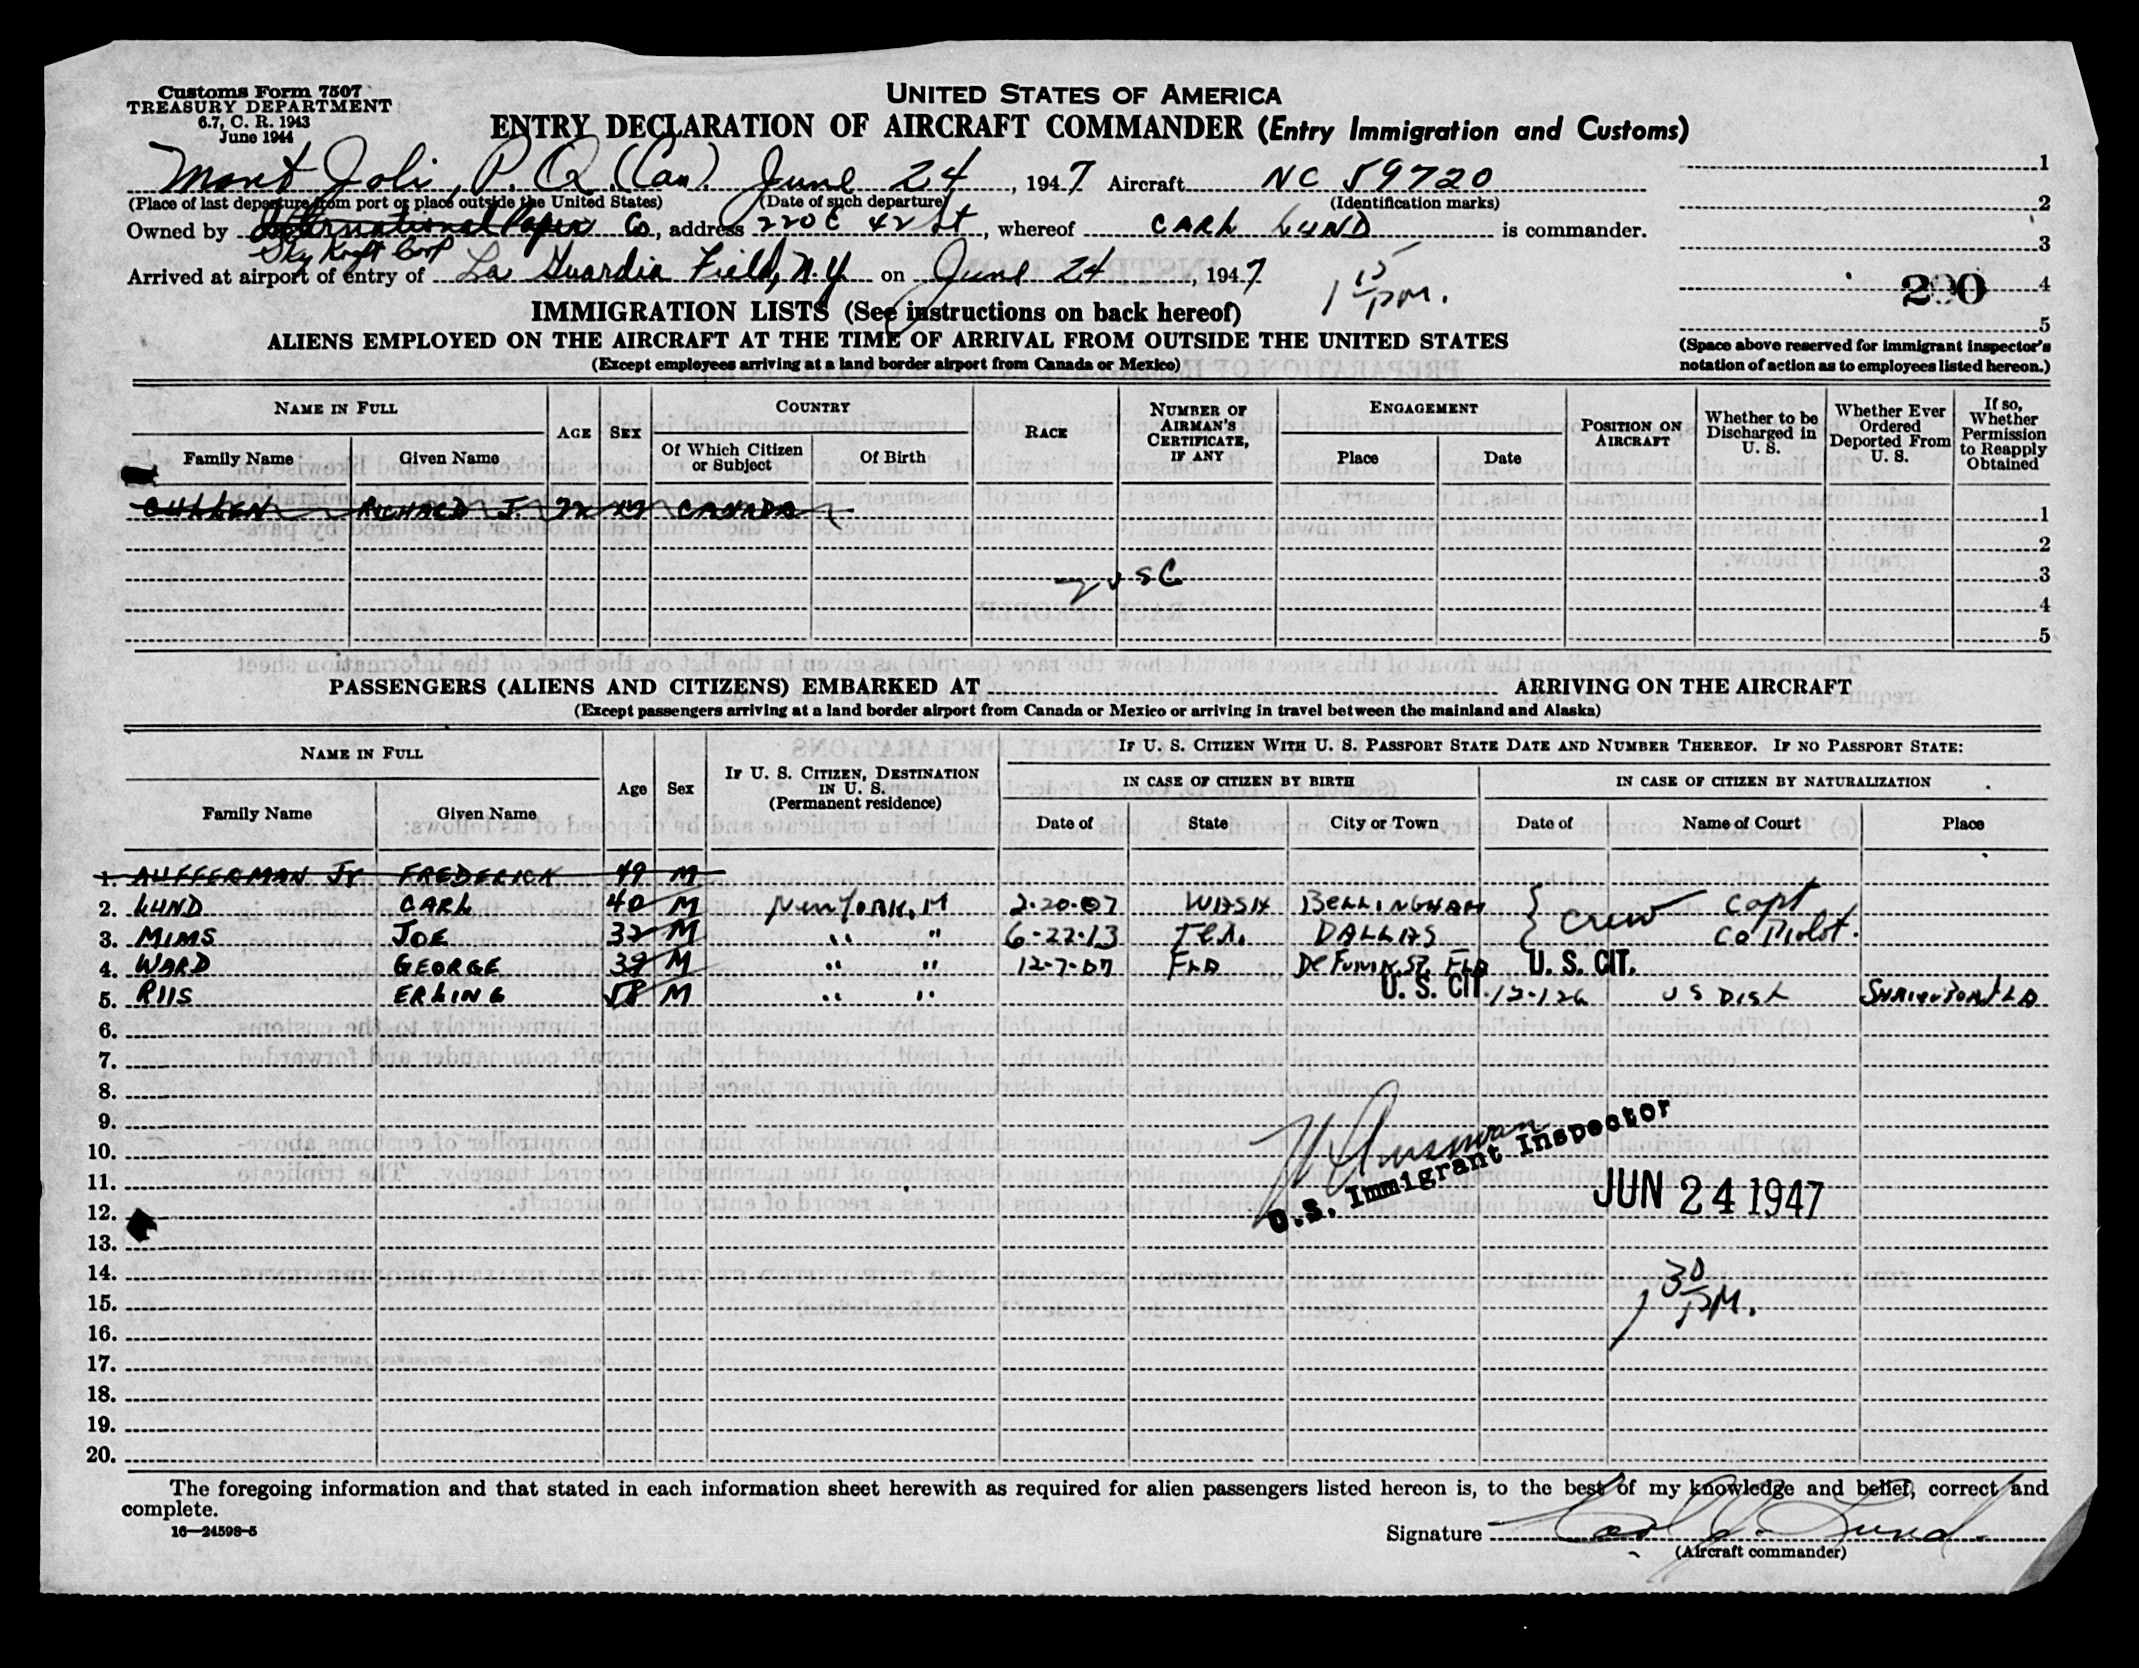 Customs Form 7507
TREASURY DEPARTMENT
6.7, C. R. 1943
June 1944
UNITED STATES OF AMERICA
ENTRY DECLARATION OF AIRCRAFT COMMANDER (Entry Immigration and Customs)
Mont Joli, P. Q. (Can). June 24, 1947 Aircraft NC 59720
(Place of last departure from port or place outside the United States) (Date of such departure) (Identification marks)
Owned by International Paper Co, address 220 E 42 St, whereof CARL LUND is commander.
Sky Kraft Corp
Arrived at airport of entry of La Guardia Field, N.Y on June 24, 1947
1 15 PM.
1
2
3
200 4
5
(Space above reserved for immigrant inspector's
notation of action as to employees listed hereon.)
IMMIGRATION LISTS (See instructions on back hereof)
ALIENS EMPLOYED ON THE AIRCRAFT AT THE TIME OF ARRIVAL FROM OUTSIDE THE UNITED STATES
(Except employees arriving at a land border airport from Canada or Mexico)
NAME IN FULL
Family Name Given Name
AGE SEX
COUNTRY
Of Which Citizen or Subject Of Birth
RACE
NUMBER OF AIRMAN'S CERTIFICATE, IF ANY
ENGAGEMENT
Place Date
POSITION ON AIRCRAFT
Whether to be Discharged in U. S.
Whether Ever Ordered Deported From U. S.
If so, Whether Permission to Reapply Obtained
CULLEN RICHARD J. CANADA 1
2
USC 3
4
5
PASSENGERS (ALIENS AND CITIZENS) EMBARKED AT ARRIVING ON THE AIRCRAFT
(Except passengers arriving at a land border airport from Canada or Mexico or arriving in travel between the mainland and Alaska)
NAME IN FULL
Family Name Given Name
Age Sex
IF U. S. CITIZEN, DESTINATION IN U. S.
(Permanent residence)
IF U. S. CITIZEN WITH U. S. PASSPORT STATE DATE AND NUMBER THEREOF. IF NO PASSPORT STATE:
IN CASE OF CITIZEN BY BIRTH IN CASE OF CITIZEN BY NATURALIZATION
Date of State City or Town Date of Name of Court Place
1. AUFFERMAN Jr FREDERICK 49 M
2. LUND CARL 40 M New York, N 2-20-07 WASH BELLINGHAM { Crew Capt
3. MIMS JOE 32 M " " 6-22-13 TEX. DALLAS Co Pilot.
4. WARD GEORGE 39 M " " 12-7-07 FLA De Funik Sp. FLA U. S. CIT.
5. RIIS ERLING 58 M " " U. S. CIT. US Dist
6.
7.
8.
9.
10.
11.
12.
13.
14.
15.
16.
17.
18.
19.
20.
U.S. Immigrant Inspector
JUN 24 1947
1 30 PM.
The foregoing information and that stated in each information sheet herewith as required for alien passengers listed hereon is, to the best of my knowledge and belief, correct and
complete.
16—24598-5
Signature Carl J. Lund.
(Aircraft commander)